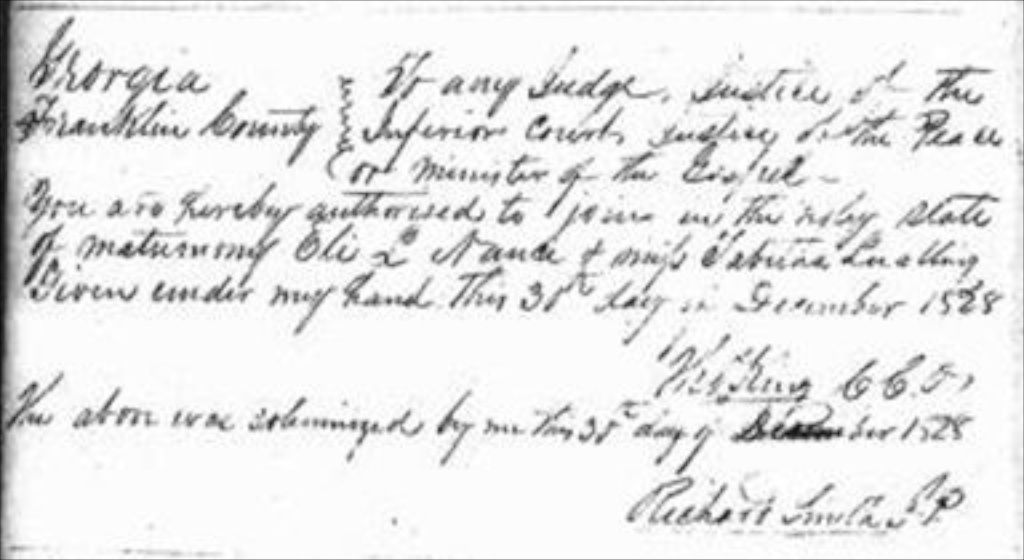 Georgia
Franklin County
To any Judge, Justice of the
Inferior Court, Justice of the Peace
or minister of the Gospel –
You are hereby authorised to join in the holy state
of matrimony Eli L Nance & miss Sabrina
Given under my hand This 30th day in December 1828
King C.C.O.
The above was solemnized by me this 30th day of December 1828
Richard Smith J.P.